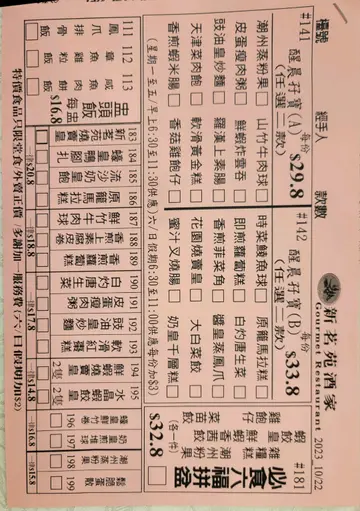 新茗苑酒家
Gourmet Restaurant 2023 10/22
檯號
經手人
款數
#141 醒晨孖寶(A) 每份
(任選二款) $29.8
潮州蒸粉果
山竹牛肉球
皮蛋瘦肉粥
鮮蝦炸雲吞
豉油皇炒麵
羅漢上素腸
天津菜肉飽
軟滑黃金糕
香煎蝦米腸
香菇雞飽仔
#142 醒晨孖寶(B) 每份
(任選二款) $33.8
時菜鯪魚球
原籠馬拉糕
即煎蘿蔔糕
白灼唐生菜
香煎韭菜角
醬皇蒸鳳爪
花園燒賣皇
大白菜餃
蜜汁叉燒腸
奶皇千層糕
(星期一至五早上6:30至11:30供應)六/日假期6:30至11:00供應每份加$3)
#181 必食六福拼盆
(各一件) $32.8
111 鳳爪排骨飯
112 章魚雞粒飯
113 咸魚肉餅飯
盅頭飯
每盅 $16.8
183 新茗苑燒賣皇
184 蠔皇鴨腳扎
185 流沙奶皇飽
186 原籠馬拉糕
一律$20.8
187 鮮竹牛肉球
188 香煎上素腐皮卷
189 香煎蘿蔔糕
一律$18.8
190 白灼唐生菜
191 皮蛋瘦肉粥
192 豉油皇炒麵
193 軟滑紅棗糕
一律$17.8
194 鮮蝦燒賣皇2隻
195 水晶蝦餃皇2隻
一律$14.8
196 蠔皇鮮竹卷
197 奶皇煎堆球
一律$16.8
198 潮州蒸粉果
199 鬆脆蛋散
一律$15.8
特價食品只限堂食 外賣正價 多謝加一服務費(六/日假期加$2)